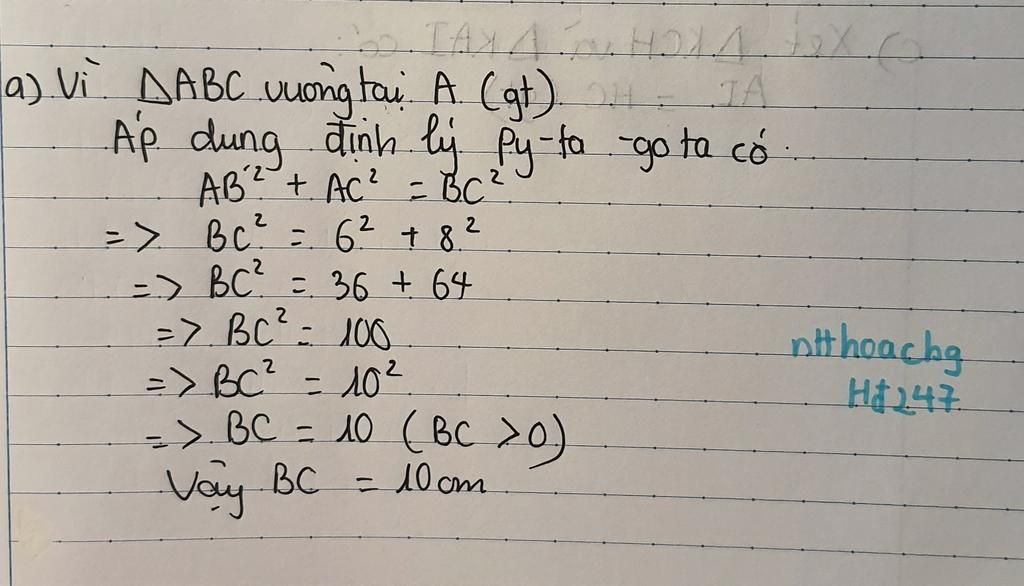 a) Vì ΔABC vuông tại A (gt)
Áp dung định lý Py-ta-go ta có:
AB² + AC² = BC²
=> BC² = 6² + 8²
=> BC² = 36 + 64
=> BC² = 100
=> BC² = 10²
=> BC = 10 (BC > 0)
Vậy BC = 10cm
ntthoachg
Hđ247